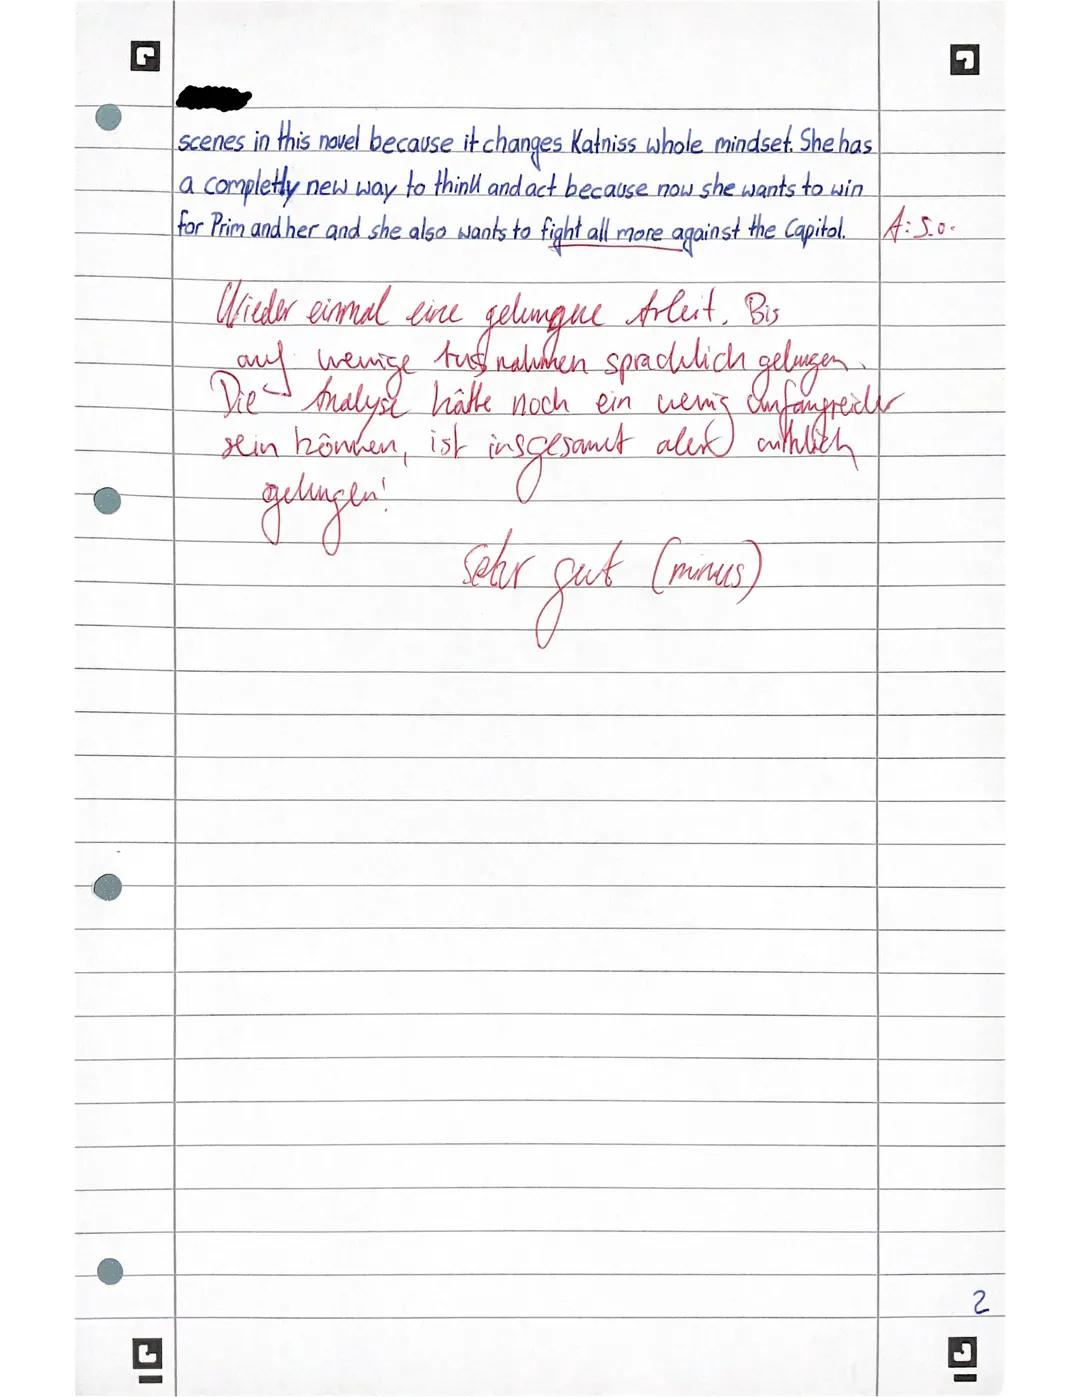 scenes in this novel because it changes Katniss whole mindset. She has
a completly new way to think and act because now she wants to win
for Prim and her and she also wants to fight all more against the Capitol. A: s.o.
Wieder einmal eine gelungene Arbeit. Bis
auf wenige Ausnahmen sprachlich gelungen.
Die Analyse hätte noch ein wenig umfangreicher
sein können, ist insgesamt aber inhaltlich
gelungen!
Sehr gut (minus)
2